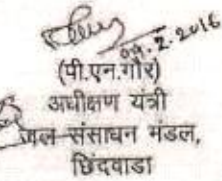 09.2.2016
(पी.एन.गौर)
अधीक्षण यंत्री
जल संसाधन मंडल,
छिंदवाडा